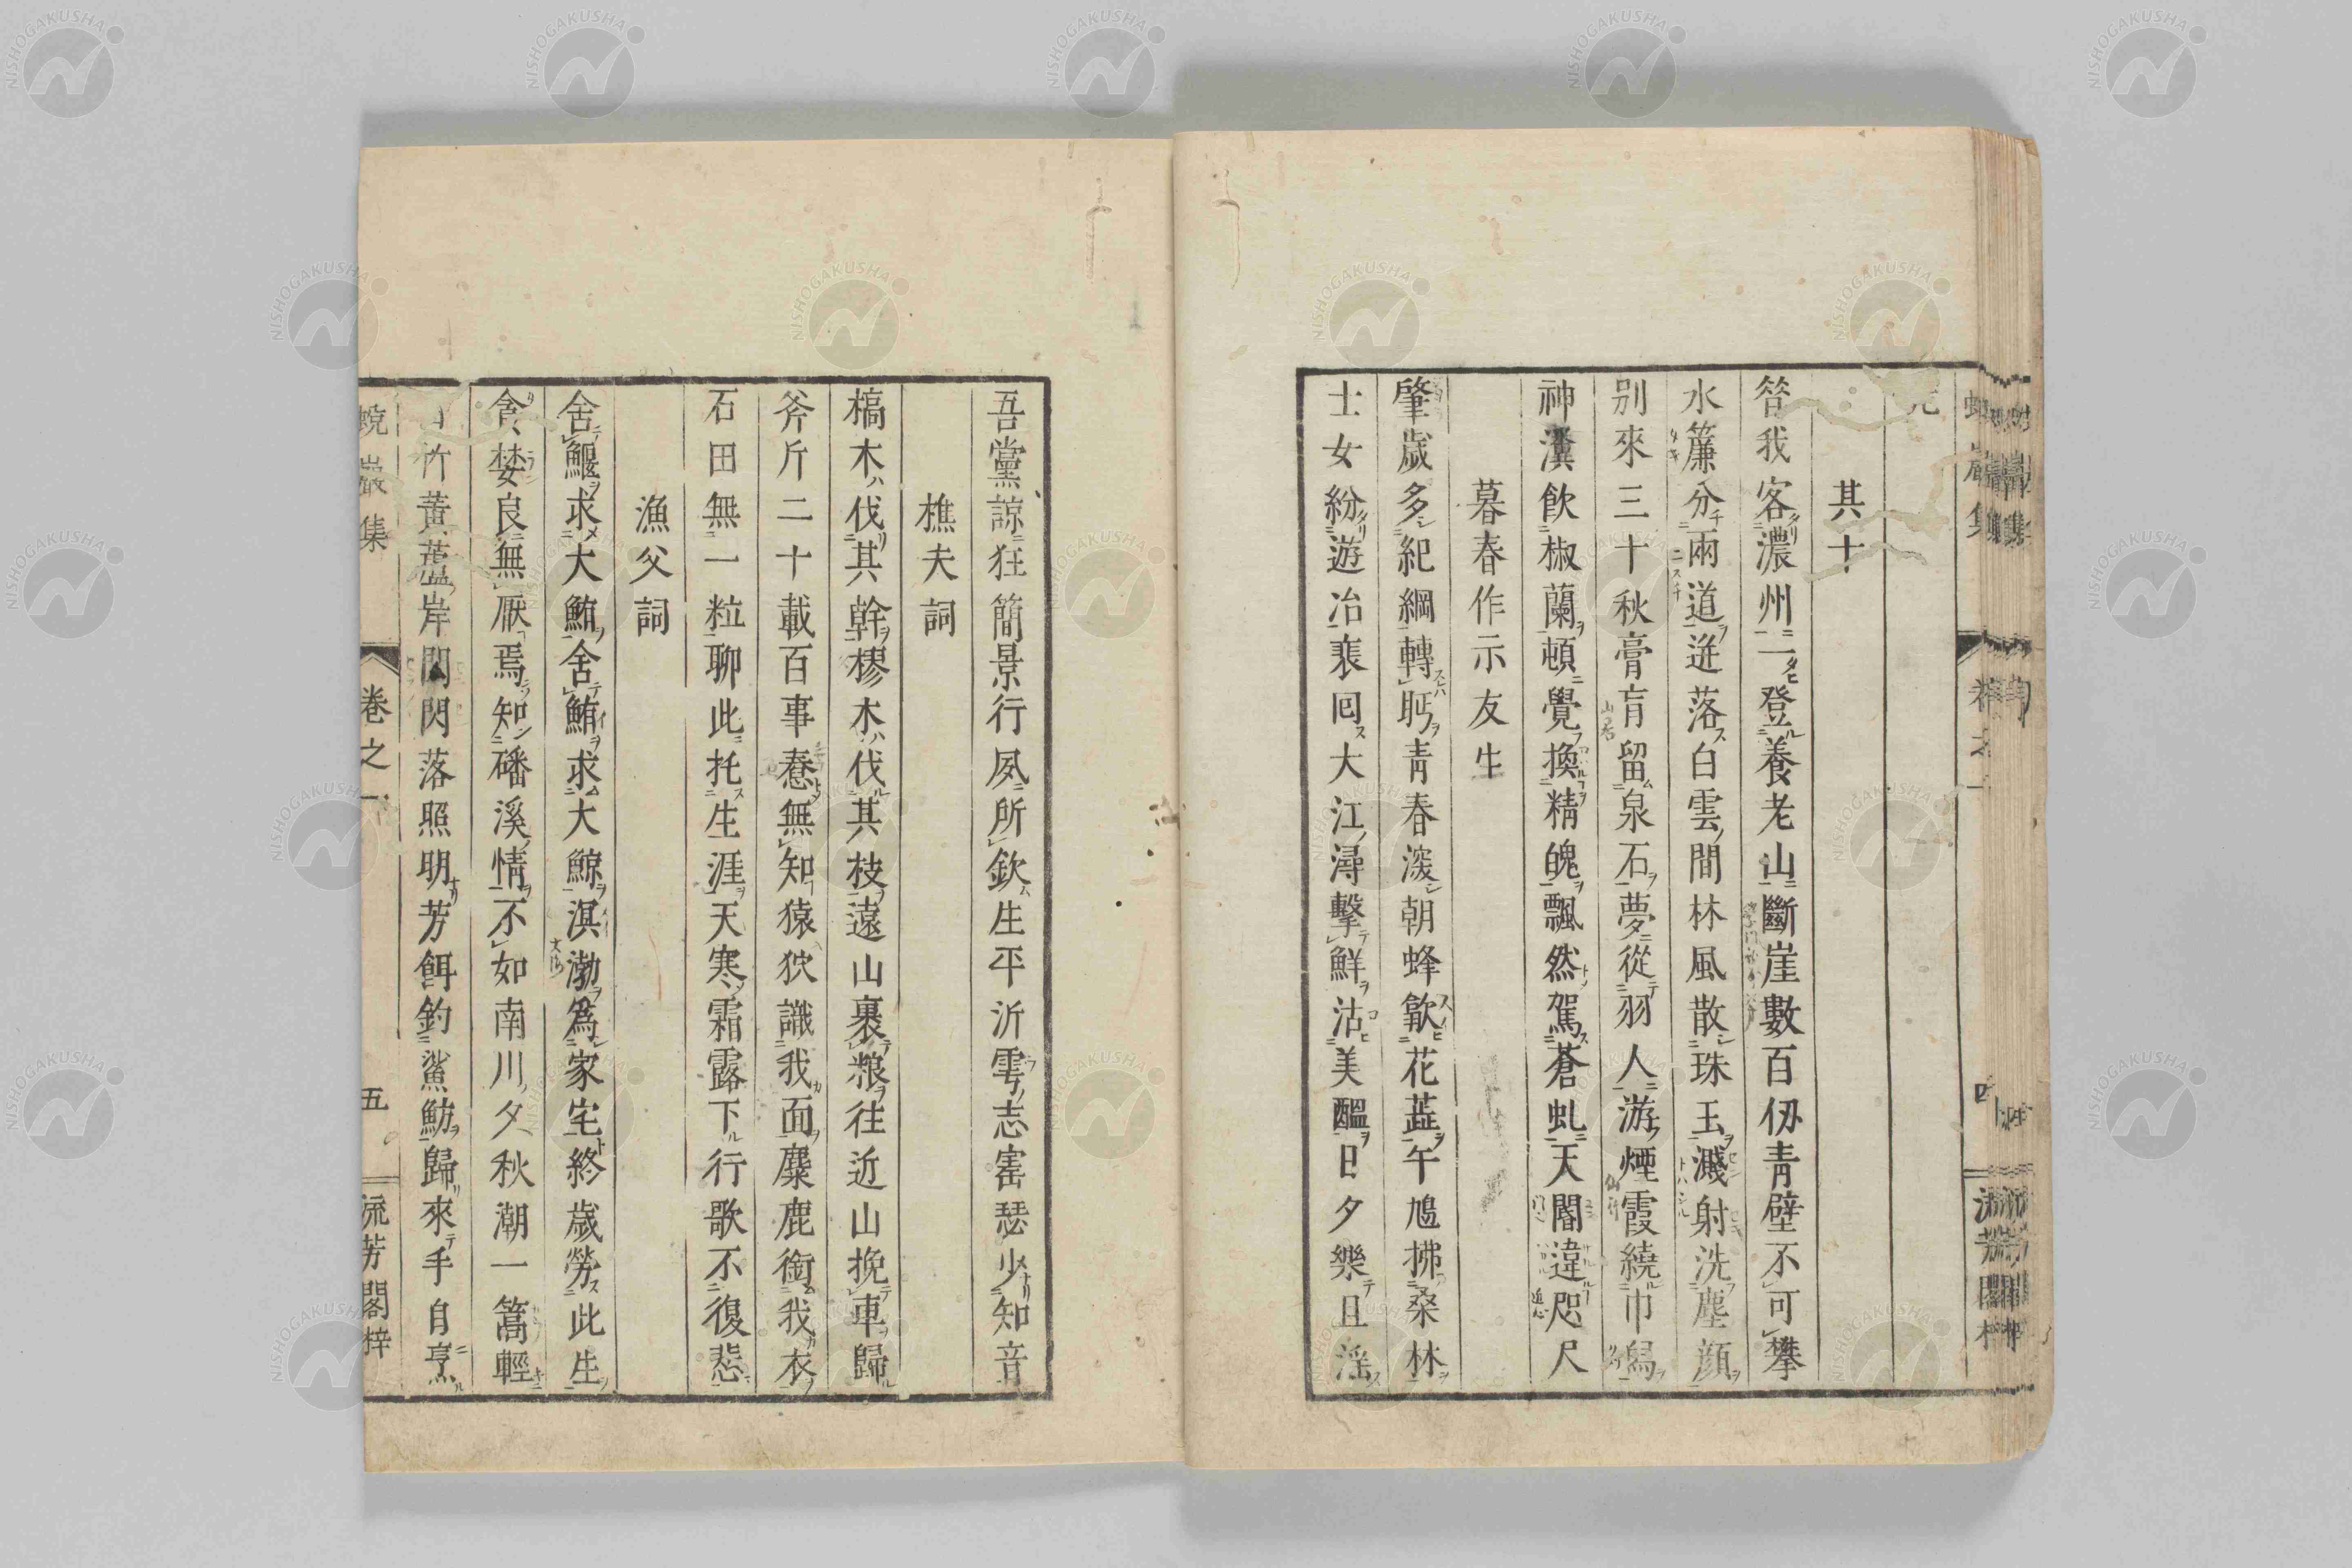 其十
昔我客濃州一二登養老山斷崖數百仞青壁不可攀
水簾分兩道迸落白雲間林風散珠玉濺射洗塵顔
別來三十秋膏肓留泉石夢從羽人游煙霞繞巾舄
神瀵飲椒蘭頓覺換精魄飄然駕蒼虬天閽違咫尺
暮春作示友生
肇歲多紀綱轉眄青春深朝蜂歙花蕋午鳩拂桑林
士女紛遊冶裴回大江潯擊鮮沽美醞日夕樂且淫
吾黨諒狂簡景行夙所欽生平沂雩志寄瑟少知音
樵夫詞
槁木伐其幹樛木伐其枝遠山裹糧往近山挽車歸
斧斤二十載百事惷無知猿狖識我面麋鹿銜我衣
石田無一粒聊此托生涯天寒霜露下行歌不復悲
漁父詞
舍鰋求大鮪舍鮪求大鯨溟渤爲家宅終歲勞此生
貪婪良無厭焉知磻溪情不如南川夕秋潮一篙輕
竹黃蘆岸閃閃落照明芳餌釣鯊魴歸來手自烹
蛻巖集 卷之一 五 流芳閣梓